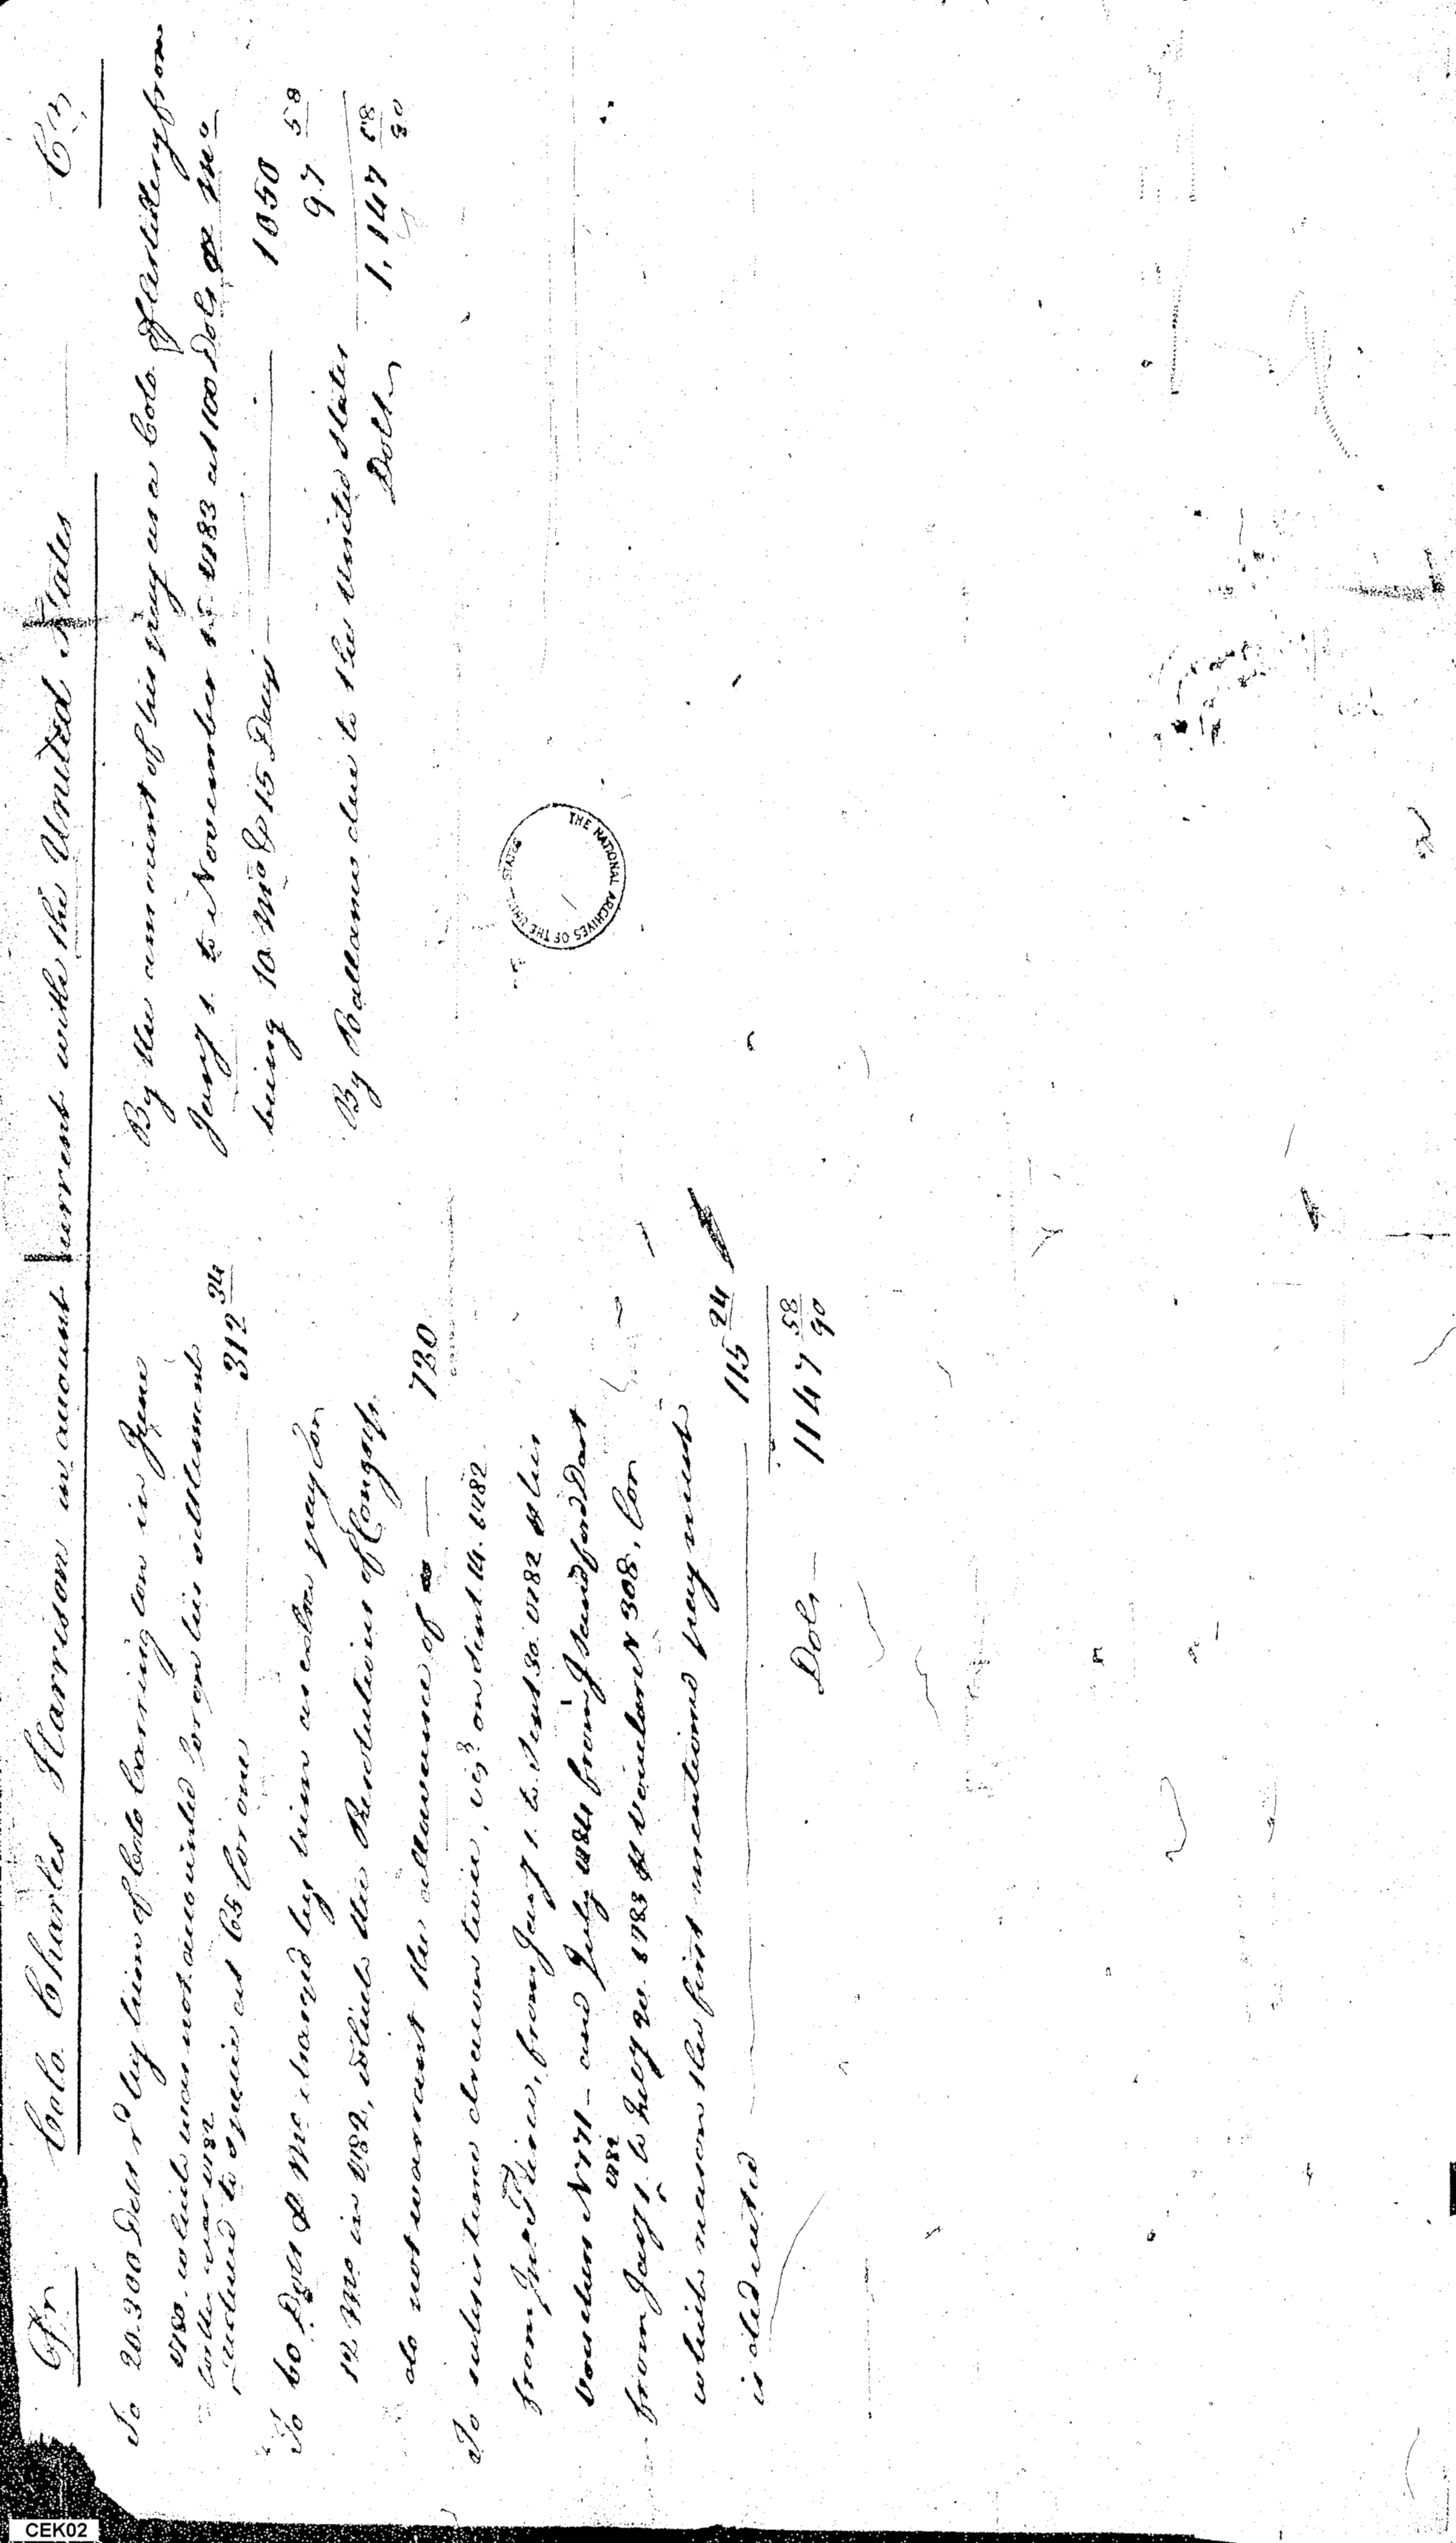 Dr Colo. Charles Harrison in account Current with the United States Cr
To 20.300 Dolls rd by him of Colo Carrington in June
1780. which was not accounted for on his settlement
for the year 1782
reduced to specie at 65 for one 312 34
To 60 Dolls p Mo charged by him as extra pay for
12 Mo in 1782, which the Resolutions of Congress
do not warrant the allowance of — 720
To subsistence drawn twice, vizt on Sept 14. 1782
from Jno Pierce, from Jany 1. to Sept 30. 1782 p his
voucher N 171 — and July 1784 from J Sandford Dart
1782
from Jany 1. to July 20. 1783 p voucher N 308, for
which reason the first mentioned payment
is deducted 115 24
Dols — 1147 58/90
By the amount of his pay as a Colo of Artillery from
Jany 1. to November 15. 1783 at 100 Dols p Mo
being 10 Mo & 15 Days 1050
97 58
By Ballance due to the United States
Dolls 1,147 58/90
THE NATIONAL ARCHIVES OF THE UNITED STATES
CEK02